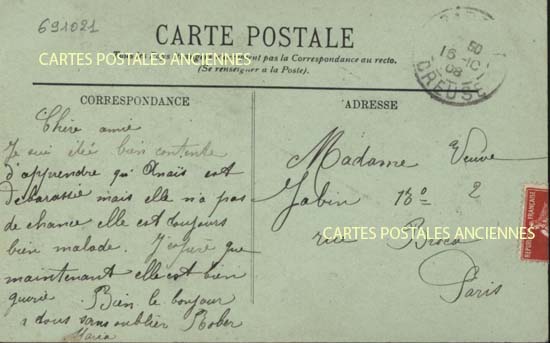 691021
CARTE POSTALE
CARTES POSTALES ANCIENNES
pas la Correspondance au recto.
(Se renseigner à la Poste).
16-10
08
CREUSE
CORRESPONDANCE
Chère amie
Je sui étée bien contente
d'apprendre qu'Anais est
debarassée mais elle n'a pas
de chance elle est toujours
bien malade. J'espère que
maintenant elle est bien
guerie. Bien le bonjour
a vous sans oublier Rober
Maria
ADRESSE
Madame Veuve
Jabin No 2
CARTES POSTALES ANCIENNES
rue Broca
Paris